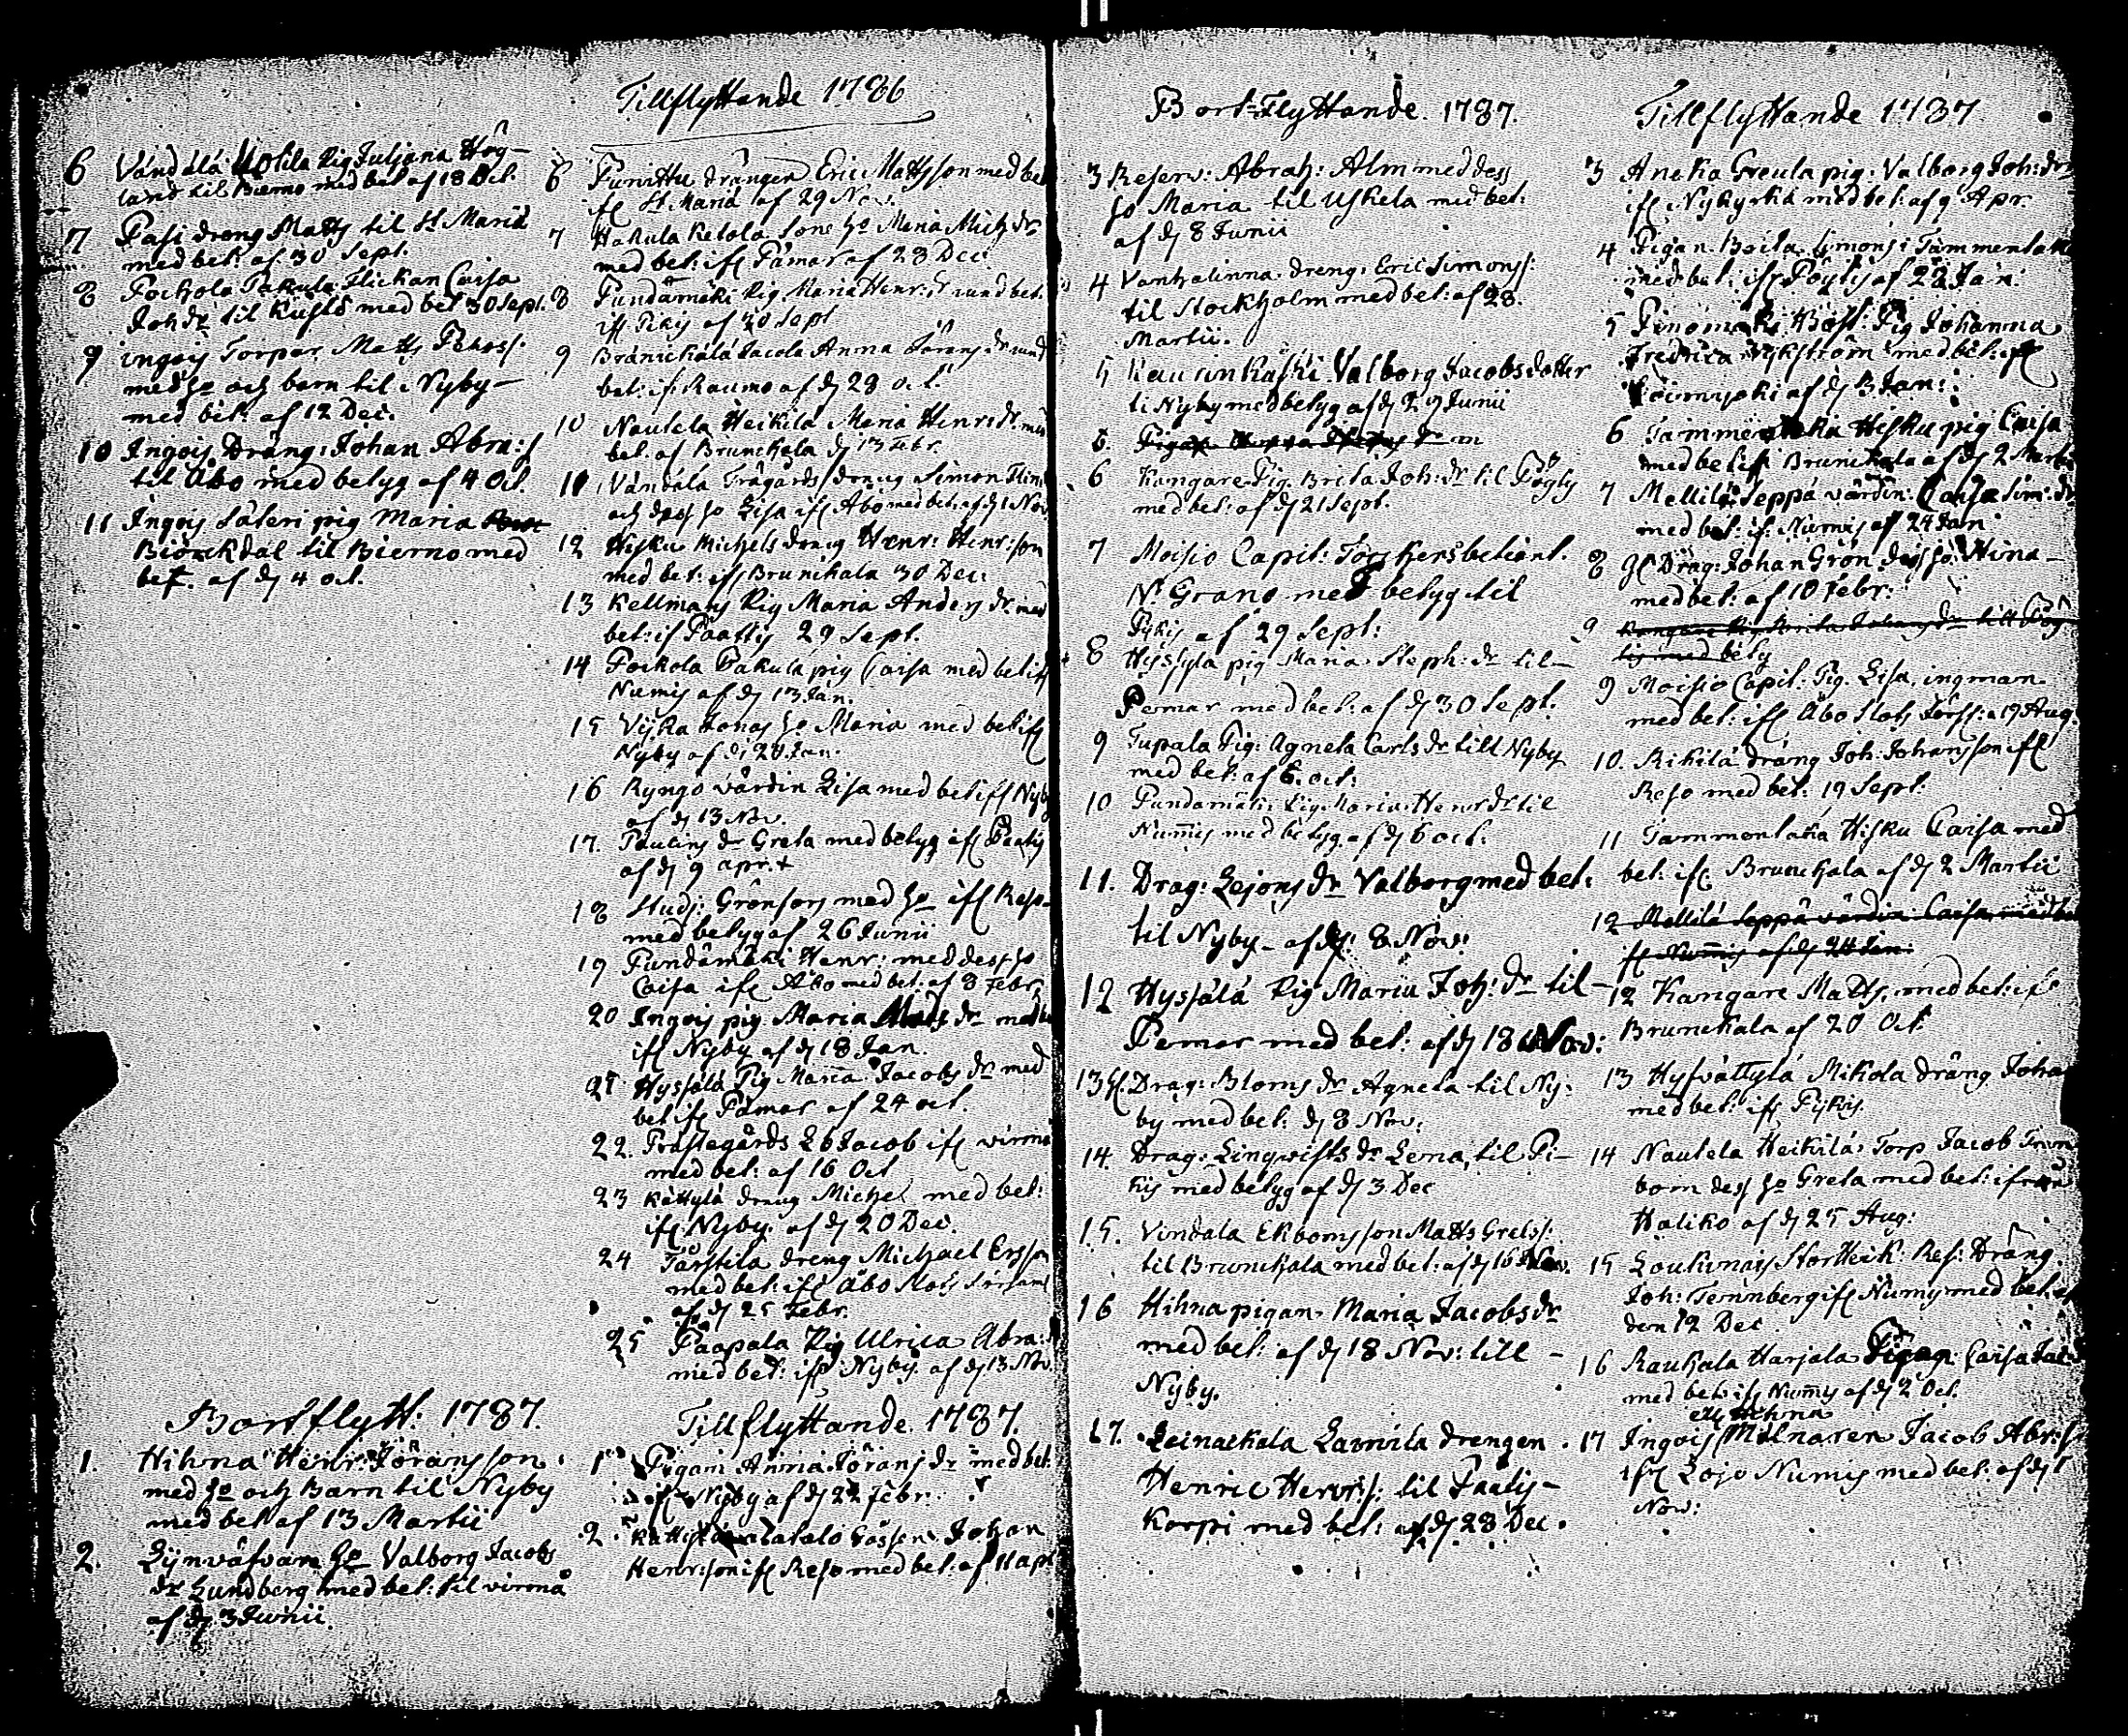 6 Vändälä Uotila Pig Juljana Hög-
land til Bierno med bet af 18 Oct.
7 Pasi dreng Matts til St Mariæ
med bet: af 30 Sept.
8 Pockola Pakula Flickan Caisa
Joh dr til Kustö med bet 30 Sept.
9 ingois Torpar Matts
med ho och barn til Nyby-
med bet: af 12 Dec.
10 Ingois Dräng: Johan Abra:s
til Åbo med betyg af 4 Oct.
11 Ingois Säteri pig Maria
Biörckdal til Bierno med
bet. af d 4 oct.
Bortflytt: 1787.
1. Hihna Henr: Jöransson
med ho och Barn til Nyby
med bet af 13 Martii
2. Lijnväfvare ho Valborg Jacobs
dr Lundberg med bet: til virmå
af d 3 Junii
Tillflyttande 1786
6 drängen Eric Mattsson med bet
ifr St Mariä af 29 Nov.
7 Hakula Ketola Sone ho Maria Mich dr
med bet: ifr Pämar af 28 Dec.
8 Pundamäki Pig Maria Henr: dr med bet.
ifr Pikis af 20 Sept
9 Bränickälä Jacola Anna Jörans dr med
bet: ifr Raumo af d 28 oct.
10 Nautela Heikilä Maria Henrs dr med
bet. af Brunckala d 13 Febr.
11 Vändälä Trägårds dreng Simon Flin
och dess ho Lisa ifr Åbo med bet: af d 1 Nov
12 Hisku Michels dreng Henr: Henr:son
med bet: ifr Brunckala 30 Dec:
13 Kellmans Pig Maria Anders dr med
bet: ifr Påattis 29 Sept.
14 Pockola Pakula pig Caisa med bet ifr
Numis af d 13 Jan.
15 Vijka Jonas ho Maria med bet ifr
Nyby af d 28 Jan.
16 Ryngö värdin Lisa med bet ifr Nyby
af d 13 Nov.
17. Paulins dr Greta med betyg ifr Paatis
af d 9 apr.
18 Studs: Grönfors med ho ifr Reso-
med betyg af 26 Junii
19 Pundamäki Henr: med dess ho
Caisa ifr Åbo med bet: af 8 Febr.
20 Ingois pig Maria Mats dr med bet
ifr Nyby af d 18 Jan.
21 Hyssälä Pig Maria Jacobs dr med
bet ifr Pämar af 24 oct.
22. Prästegårds Jacob ifr virmo
med bet: af 16 Oct
23 Kättylä dreng Michel med bet:
ifr Nyby: af d 20 Dec.
24 Tårstila dreng Michael Ersson
med bet: ifr Åbo slots Församl
af d 25 Febr.
25 Pääpala Pig Ulrica Abra:
med bet: ifr Nyby: af d 13 Nov
Tillflyttande 1787.
1 Pigan Anna Jörans dr med bet:
ifr Nyby af d 22 Febr.
2. Gåssen Johan
Henr:son ifr Reso med bet: af 11 Apr
Bort-Flyttande. 1787.
3 Reserv: Abrah: Alm med dess
ho Maria til Uskela med bet:
af d 8 Junii
4 Vanhalinna dreng: Eric Simons:
til Stockholm med bet: af 28.
Martii.
5 Valborg Jacobsdotter
ti Nyby med betyg af d 29 Junii
6.
6 Kangare Pig. Brita Joh: dr til Pögty
med bet: af d 21 Sept.
7 Moisio Capit: Torskers betient.
Nr. Grano med betyg til
Pykis af 29 Sept:
8 Hyssyla pig Maria Steph: dr til-
Pemar med bet: af d 30 Sept:
9 Tupala Pig: Agneta Carls dr till Nyby
med bet: af 6. oct:
10 Pundamäki Pig Maria Henr dr til
Numis med betyg af d 6 oct:
11. Drag: Lejons dr Valborg med bet:
til Nyby- af d: 8 Nov:
12 Hyssälä Pig Maria Joh: dr til-
Pemar med bet: af d 18 Nov:
13 Drag: Bloms dr Agneta til Ny:
by med bet: d 8 Nov.
14. Drag: Lingvists dr Lena, til Pi-
kis med betyg af d 3 Dec
15. Vindala Ekboms son Matts Grels:
til Brunckala med bet: af d 16 Nov.
16 Hihna pigan Maria Jacobs dr
med bet: af d 18 Nov: till -
Nyby.
17. Leinackala Laurila drengen
Henric Henr:s: til Paatis-
Korpi med bet: af d 28 Dec.
Tillflyttande 1787
3 Aneka Greula pig: Valborg Joh: dr
ifr Nykyrka med bet: af 9 Apr
4 Pigan Brita Simons: Tammentaka
med bet: ifr Pöytis af 22 Jan:
5 Pinomäki Pig Johanna
Fredrica Vykström med bet: ifr
Loimjoki af d 3 Jan:
6 Tammentaka Hisku pig Caisa
med bet ifr Brunckala af d 2 Marti
7 Mellilä Seppä värdin: Caisa Sim: dr
med bet: ifr Numis af 24 Jan
8 Drag: Johan Grön dess ho: Stina-
med bet: af 10 Febr:
9 Kangare Pig Brita Johans dr till Pög
tis med bety
9 Moisio Capit: Pig. Lisa. ingman
med bet: ifr Åbo Slots Förs: a 19 Aug.
10. Rikilä dräng Joh: Johansson ifr
Reso med bet: 19 Sept:
11 Tammentaka Hisku Caisa med
bet: ifr Brunckala af d 2 Martii
12 Mellilä Seppä värdin Caisa, med bet
ifr Numis af d 24 Jan:
12 Kangare Matts, med bet: ifr
Brunckala af 20 Oct.
13 Hyfvättylä Mikola dräng Johan
med bet: ifr Pykis.
14 Nautela Heikilä: Torp Jacob
bom dess ho Greta med bet: ifrån
Haliko af d 25 Aug:
15 Storheik: Res: Dräng
Joh: Ternberg ifr Numis med bet: af
den 12 Dec
16 Raukala Harjala Pigan: Caisa Jac: d
med bet: ifr Numis af d 2 Oct.
ell Hihna
17 Ingois Mölnaren Jacob Abr:s
ifr Lojo Numis med bet: af d 1
Nov: